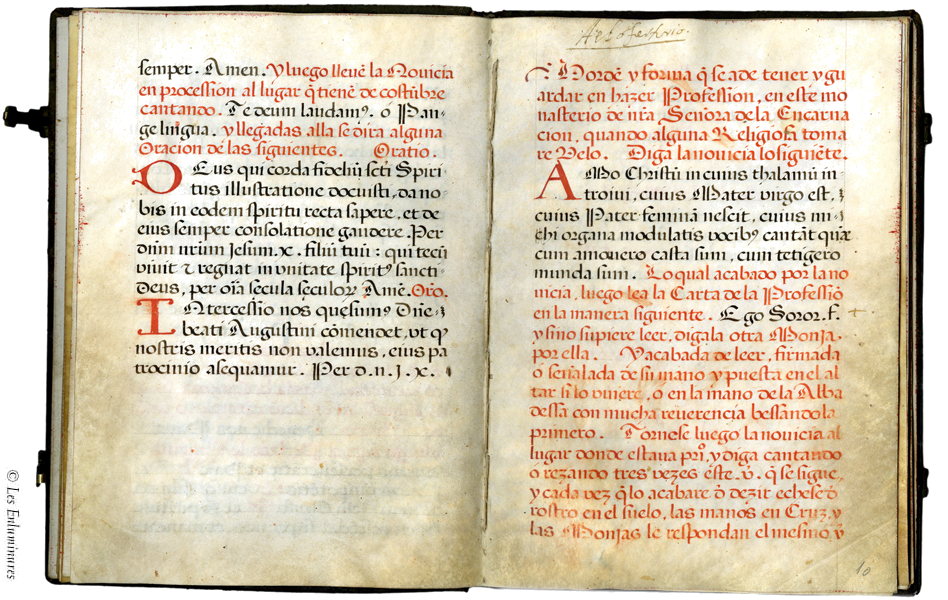 semper. Amen. Y luego lleuē la Nouicia
en procession al lugar q̄ tienē de costūbre
cantando. Te deum laudamꝰ. ó Pan-
ge lingua. y llegadas alla se dira alguna
Oracion de las siguientes. Oratio.
DEus qui corda fideliū scti Spiri
tus illustratione docuisti, da no-
bis in eodem spiritu recta sapere, et de
eius semper consolatione gaudere. Per
dn̄m nr̄um Jesum. x. filiū tuū: qui tecū
viuit & regnat in vnitate spiritꝰ sancti
Deus, per oīa secula seculoꝝ Amē. Oro.
INtercessio nos quesumꝰ Dne
beati Augustini cōmendet, vt q̄
nostris meritis non valemus, eius pa
trocinio asequamur. Per D. n. J. x.
Lordē y forma q̄ se a de tener y gu
ardar en hazer Profession, en este mo
nasterio de nr̄a Señora de la Encarna
cion, quando alguna Religiosa toma
re Velo. Diga la nouicia lo siguiēte.
AMo Christū in cuius thalamū in-
troiui, cuius Mater virgo est, &
cuius Pater feminā nescit, cuius mi-
chi organa modulatis vocibꝰ cantāt quæ
cum amouero casta sum, cum tetigero
munda sum. Lo qual acabado por la no
uicia, luego lea la Carta de la Professiō
en la manera siguiente. Ego Soror. f. +
y si no supiere leer, digala otra Monja.
por ella. Y acabada de leer, firmada
o señalada de su mano y puesta en el al
tar si lo vuiere, o en la mano de la Alba
dessa con mucha reuerencia bessandola
primero. Tornese luego la nouicia al
lugar donde estaua prīº, y diga cantando
o rezando tres vezes este. v̄. q̄ se sigue,
y cada vez q̄ lo acabare d̄ dezir echese d̄
rostro en el suelo, las manos en Cruz, y
las Monjas le respondan el mesmo, v̄
10
© Les Enluminures